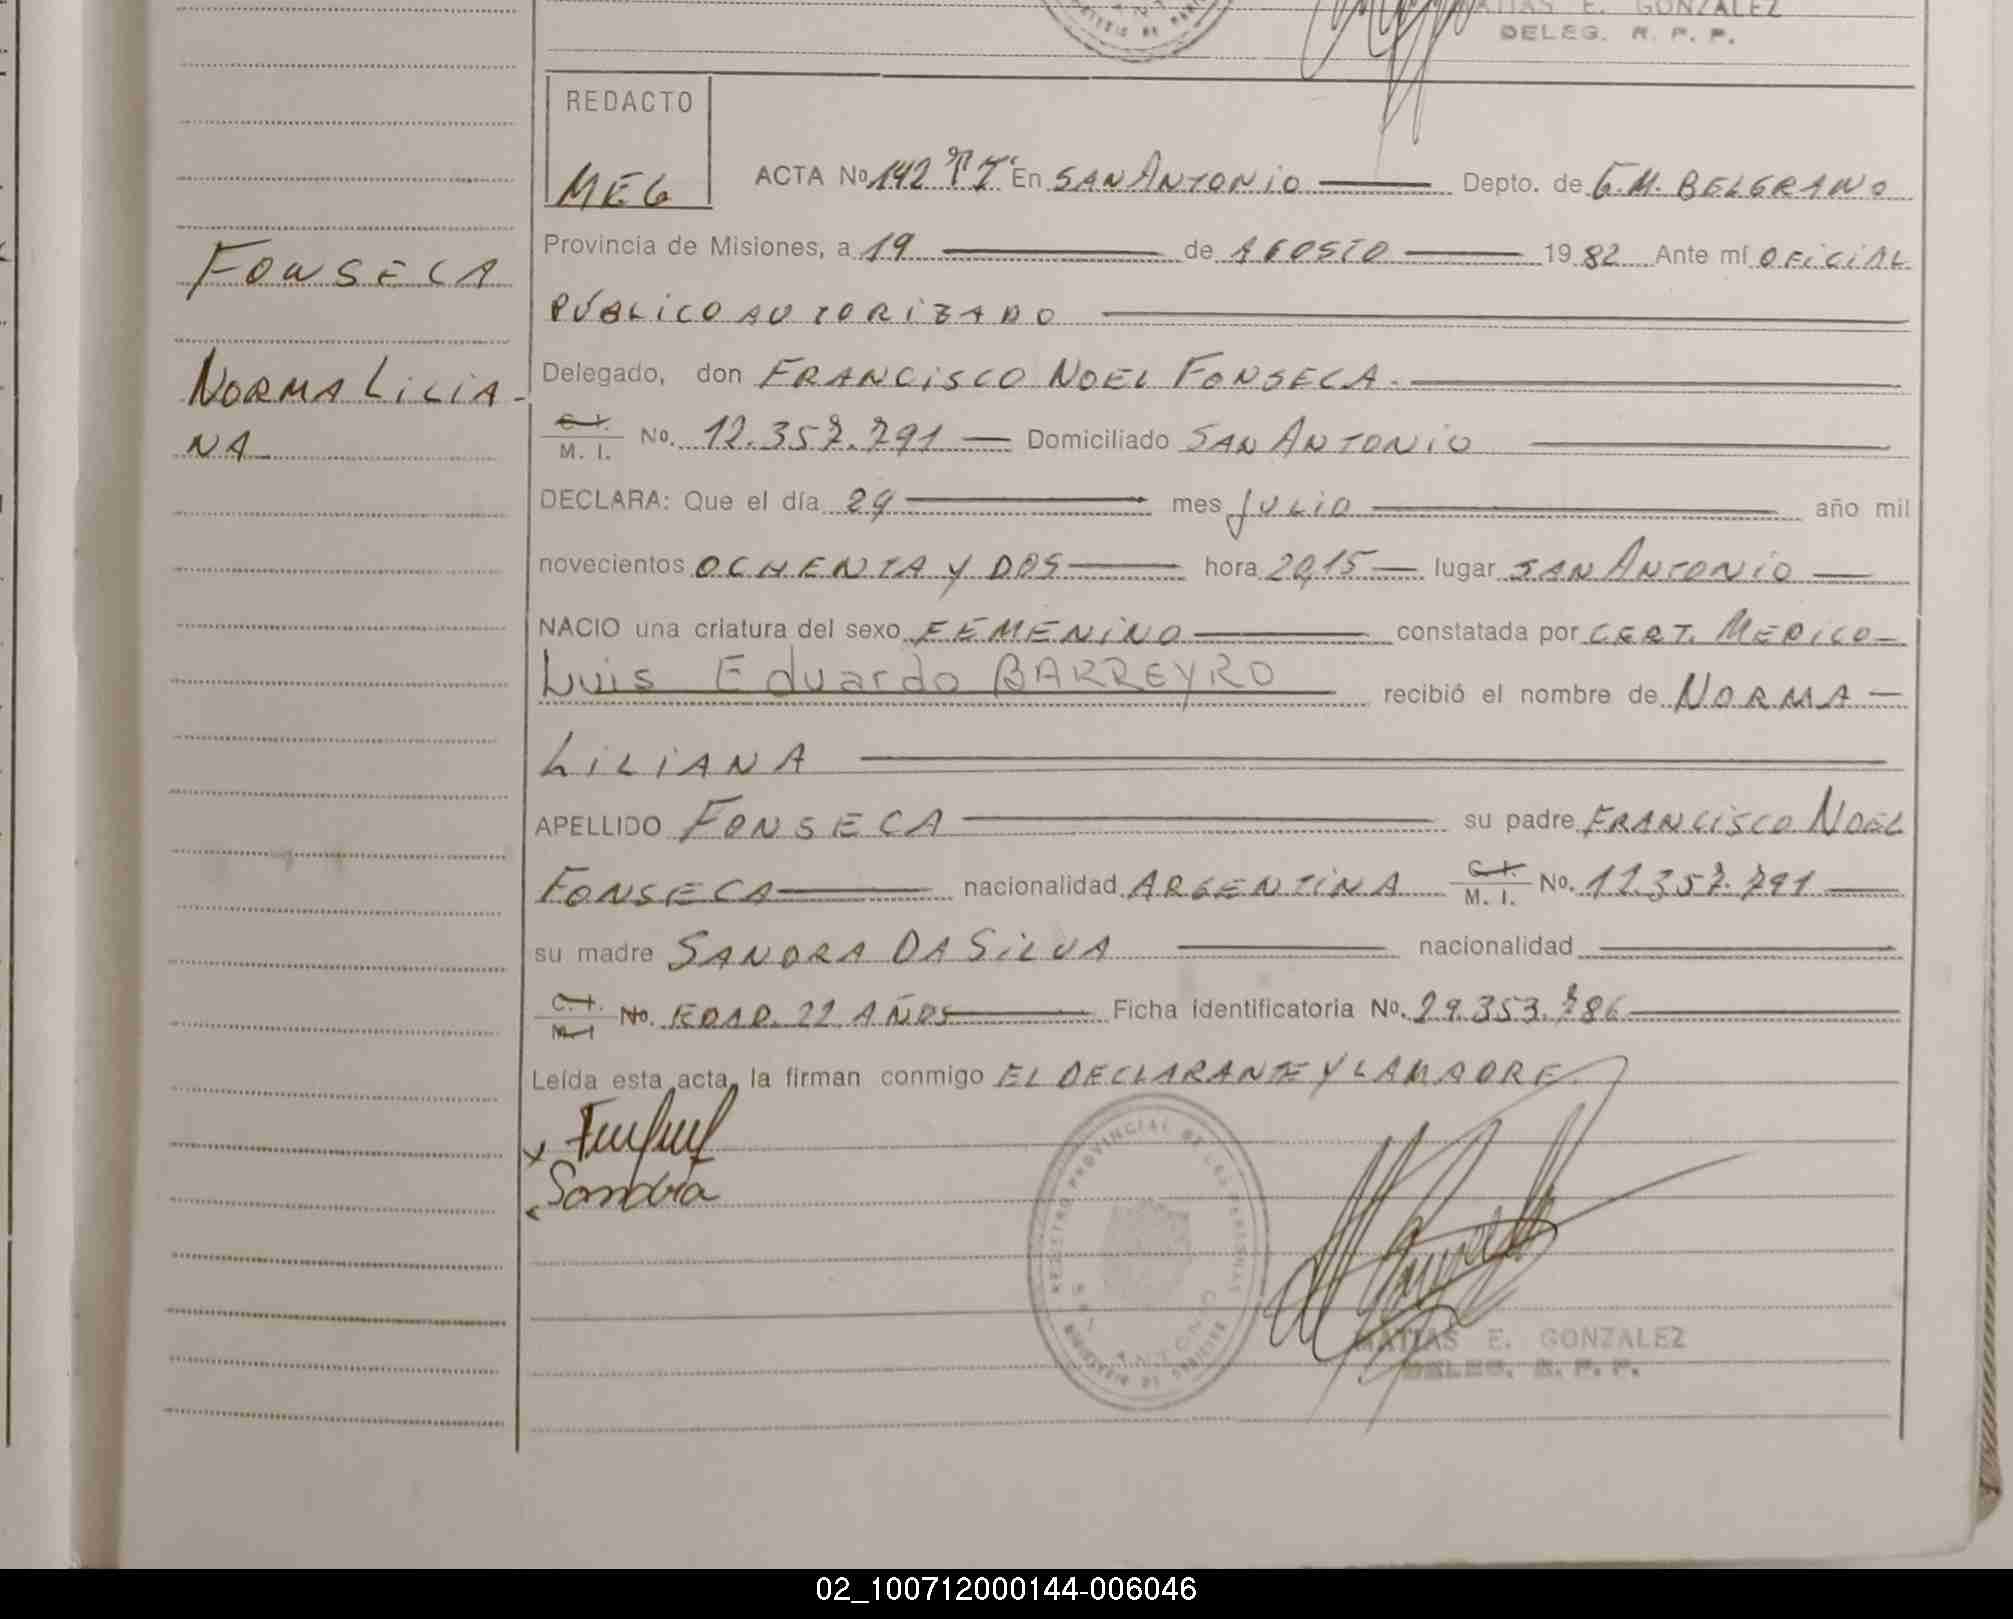 MATIAS E. GONZALEZ
DELEG. R. P. P.
REDACTO
MEG
ACTA No 142 TI En SAN ANTONIO Depto. de G.M. BELGRANO
Provincia de Misiones, a 19 de AGOSTO 1982 Ante mí OFICIAL
PÚBLICO AUTORIZADO
Delegado, don FRANCISCO NOEL FONSECA.
C. I.
M. I. No. 12.357.791 Domiciliado SAN ANTONIO
DECLARA: Que el día 29 mes JULIO año mil
novecientos OCHENTA Y DOS hora 20,15 lugar SAN ANTONIO
NACIO una criatura del sexo FEMENINO constatada por CERT. MEDICO
Luis Eduardo BARREYRO recibió el nombre de NORMA
LILIANA
APELLIDO FONSECA su padre FRANCISCO NOEL
FONSECA nacionalidad ARGENTINA C. I. M. I. No. 12.357.791
su madre SANDRA DA SILVA nacionalidad
C. I. M. I. No. EDAD. 22 AÑOS Ficha identificatoria No. 29.353.786
Leída esta acta, la firman conmigo EL DECLARANTE Y LA MADRE.
Sandra
REGISTRO PROVINCIAL DE LAS PERSONAS
SAN ANTONIO
MATIAS E. GONZALEZ
DELEG. R. P. P.
FONSECA
NORMA LILIA-
NA
02_100712000144-006046